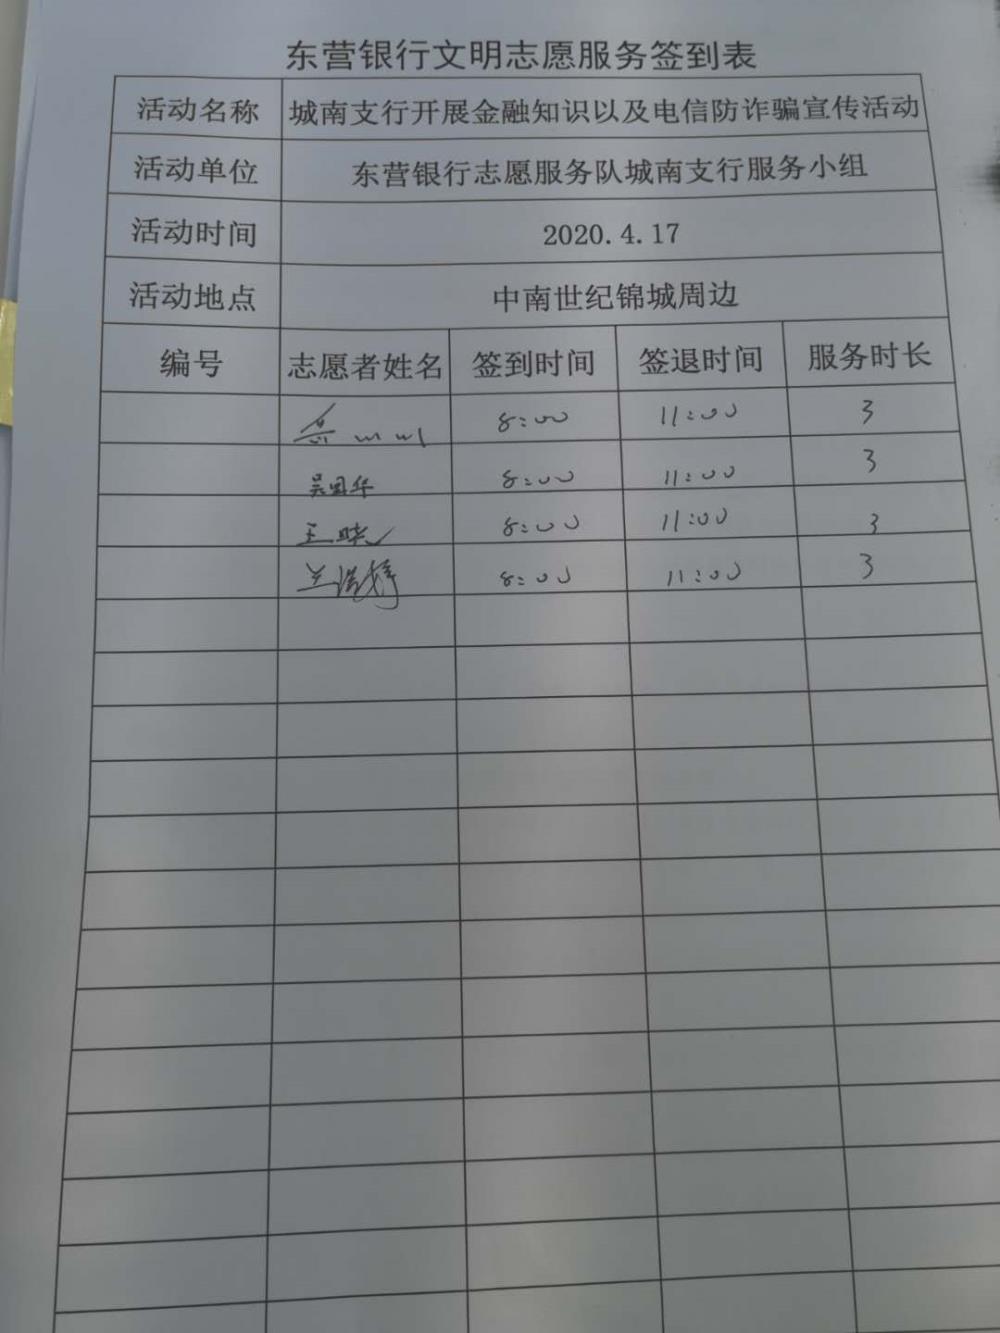 东营银行文明志愿服务签到表
活动名称 城南支行开展金融知识以及电信防诈骗宣传活动
活动单位 东营银行志愿服务队城南支行服务小组
活动时间 2020.4.17
活动地点 中南世纪锦城周边
编号 志愿者姓名 签到时间 签退时间 服务时长
8:00 11:00 3
吴国华 8:00 11:00 3
王晓 8:00 11:00 3
兰 8:00 11:00 3